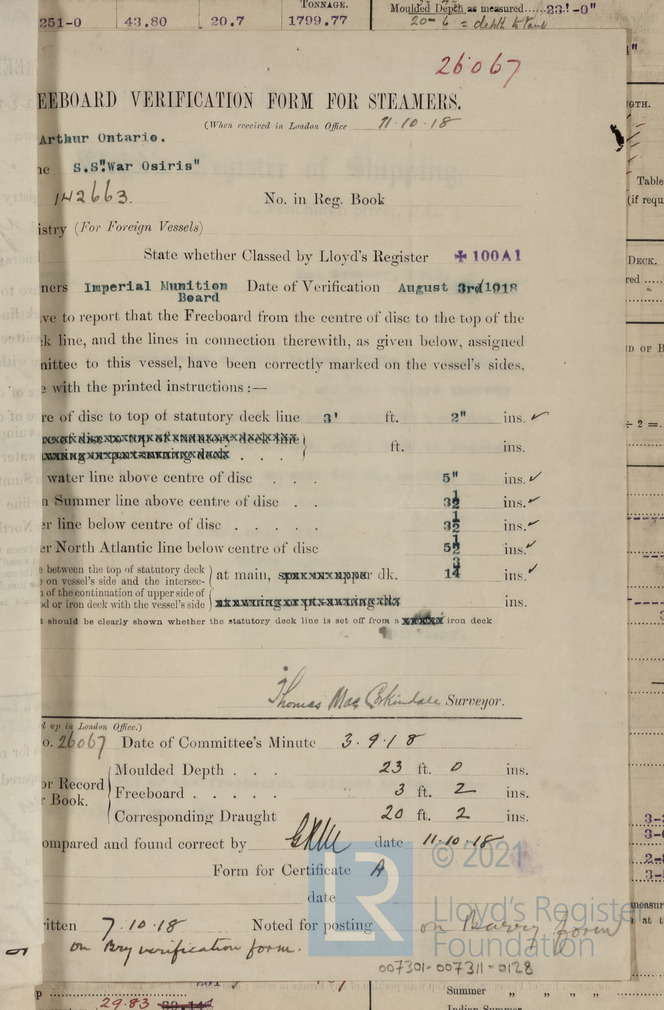 TONNAGE.
251-0 43.80 20.7 1799.77
Moulded Depth as measured.....23'-0"
20-6 = depth to tank
26067
EEBOARD VERIFICATION FORM FOR STEAMERS.
(When received in London Office 11·10·18
Arthur Ontario.
ne S.S."War Osiris"
142663. No. in Reg. Book
istry (For Foreign Vessels)
State whether Classed by Lloyd's Register ✠100A1
ners Imperial Munition Board Date of Verification August 3rd/1918
ve to report that the Freeboard from the centre of disc to the top of the
k line, and the lines in connection therewith, as given below, assigned
mittee to this vessel, have been correctly marked on the vessel's sides,
e with the printed instructions :—
re of disc to top of statutory deck line 3' ft. 2" ins.
ft. ins.
water line above centre of disc . . . 5" ins.
n Summer line above centre of disc . . 3½ ins.
er line below centre of disc . . . . . 3½ ins.
er North Atlantic line below centre of disc 5½ ins.
e between the top of statutory deck
on vessel's side and the intersec-
n of the continuation of upper side of
od or iron deck with the vessel's side
at main, dk. 1¾ ins.
ins.
t should be clearly shown whether the statutory deck line is set off from a iron deck
Thomas Mac Corkindale Surveyor.
d up in London Office.)
o. 26067 Date of Committee's Minute 3·9·18
or Record
Book.
Moulded Depth . . . 23 ft. 0 ins.
Freeboard . . . . . 3 ft. 2 ins.
Corresponding Draught 20 ft. 2 ins.
ompared and found correct by date 11·10·18
Form for Certificate A
date
ritten 7·10·18 Noted for posting on Barry form
on Bry verification form.
LR
© 2021
Lloyd's Register
Foundation
007301-007311-0128
29.83
Summer " " " "
Indian Summer
GTH.
Table
(if requ
DECK.
red .....
D OF B
÷ 2 =.
measur
at t